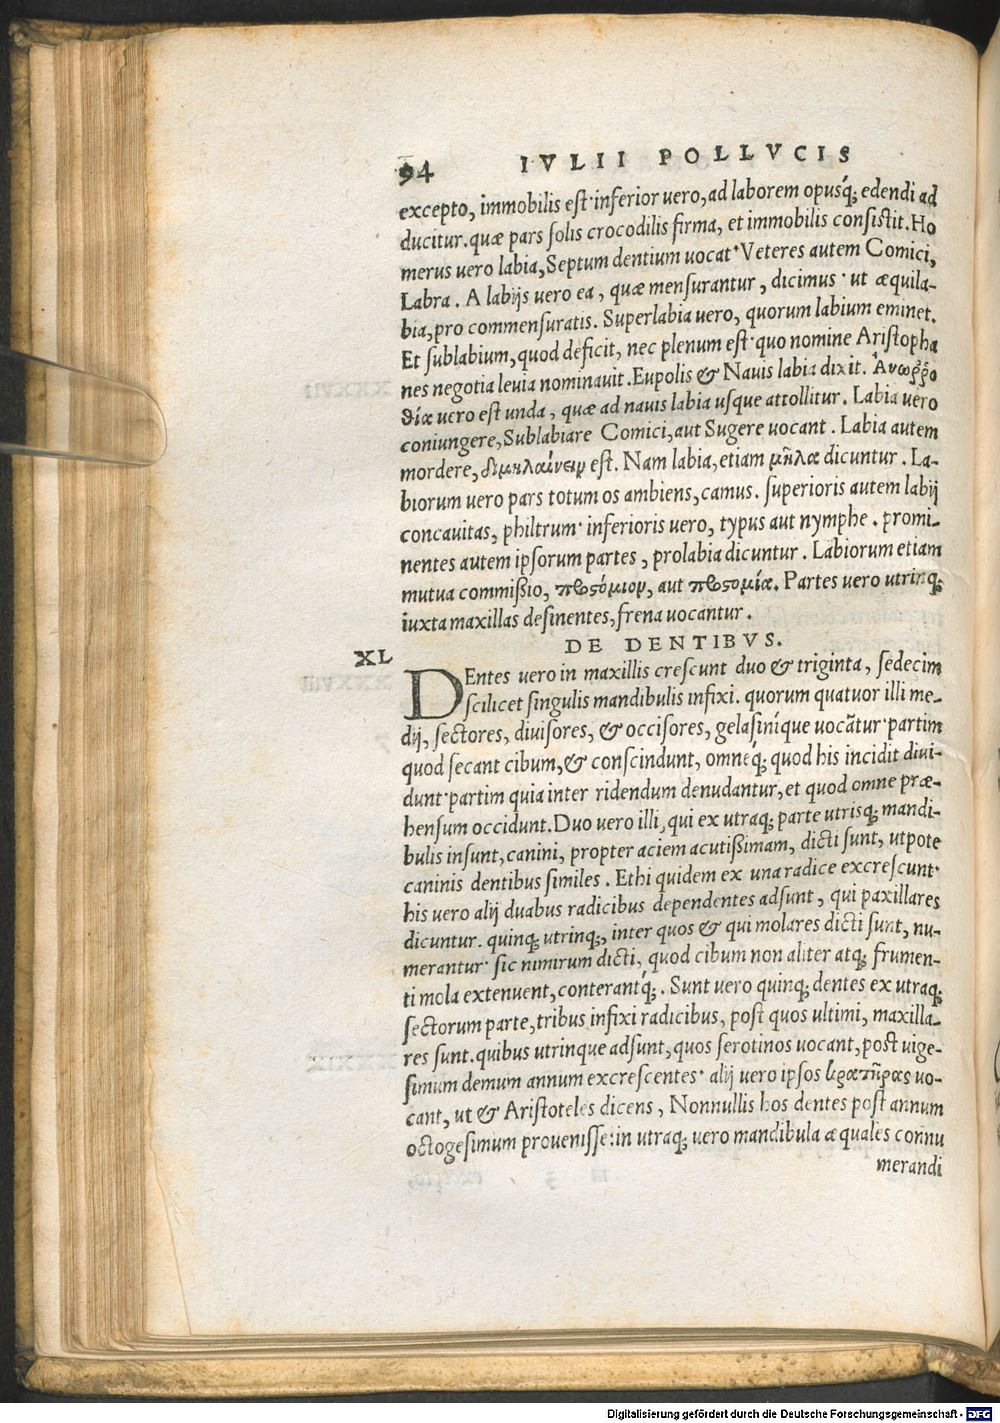 94 IVLII POLLVCIS
excepto, immobilis est· inferior vero, ad laborem opusq́; edendi ad
ducitur. quæ pars solis crocodilis firma, et immobilis consistit. Ho
merus uero labia, Septum dentium uocat· Veteres autem Comici,
Labra. A labijs uero ea, quæ mensurantur, dicimus· ut æquila-
bia, pro commensuratis. Superlabia uero, quorum labium eminet.
Et sublabium, quod deficit, nec plenum est· quo nomine Aristopha
nes negotia leuia nominauit. Eupolis & Nauis labia dixit. Ἀνωῤῥο
θία vero est unda, quæ ad nauis labia usque attollitur. Labia uero
coniungere, Sublabiare Comici, aut Sugere uocant. Labia autem
mordere, διμηλαίνειν est. Nam labia, etiam μῆλα dicuntur. La-
biorum uero pars totum os ambiens, camus. superioris autem labij
concauitas, philtrum· inferioris uero, typus aut nymphe. promi-
nentes autem ipsorum partes, prolabia dicuntur. Labiorum etiam
mutua commißio, προσόμιον, aut προστομία. Partes uero utrinq;
iuxta maxillas desinentes, frena uocantur.
DE DENTIBVS.
XL
DEntes uero in maxillis crescunt duo & triginta, sedecim
scilicet singulis mandibulis infixi. quorum quatuor illi me-
dij, sectores, diuisores, & occisores, gelasiníque vocãtur· partim
quod secant cibum, & conscindunt, omneq́; quod his incidit diui-
dunt· partim quia inter ridendum denudantur, et quod omne præ-
hensum occidunt. Duo uero illi, qui ex utraq; parte utrisq; mandi-
bulis insunt, canini, propter aciem acutißimam, dicti sunt, utpote
caninis dentibus similes. Et hi quidem ex una radice excrescunt·
his uero alij duabus radicibus dependentes adsunt, qui paxillares
dicuntur. quinq; utrinq;, inter quos & qui molares dicti sunt, nu-
merantur· sic nimirum dicti, quod cibum non aliter atq; frumen-
ti mola extenuent, conterantq́;. Sunt uero quinq; dentes ex utraq;
sectorum parte, tribus infixi radicibus, post quos ultimi, maxilla-
res sunt. quibus utrinque adsunt, quos serotinos uocant, post uige-
simum demum annum excrescentes· alij uero ipsos κρατῆρας uo-
cant, ut & Aristoteles dicens, Nonnullis hos dentes post annum
octogesimum prouenisse: in utraq; uero mandibula æquales connu
merandi
Digitalisierung gefördert durch die Deutsche Forschungsgemeinschaft - DFG